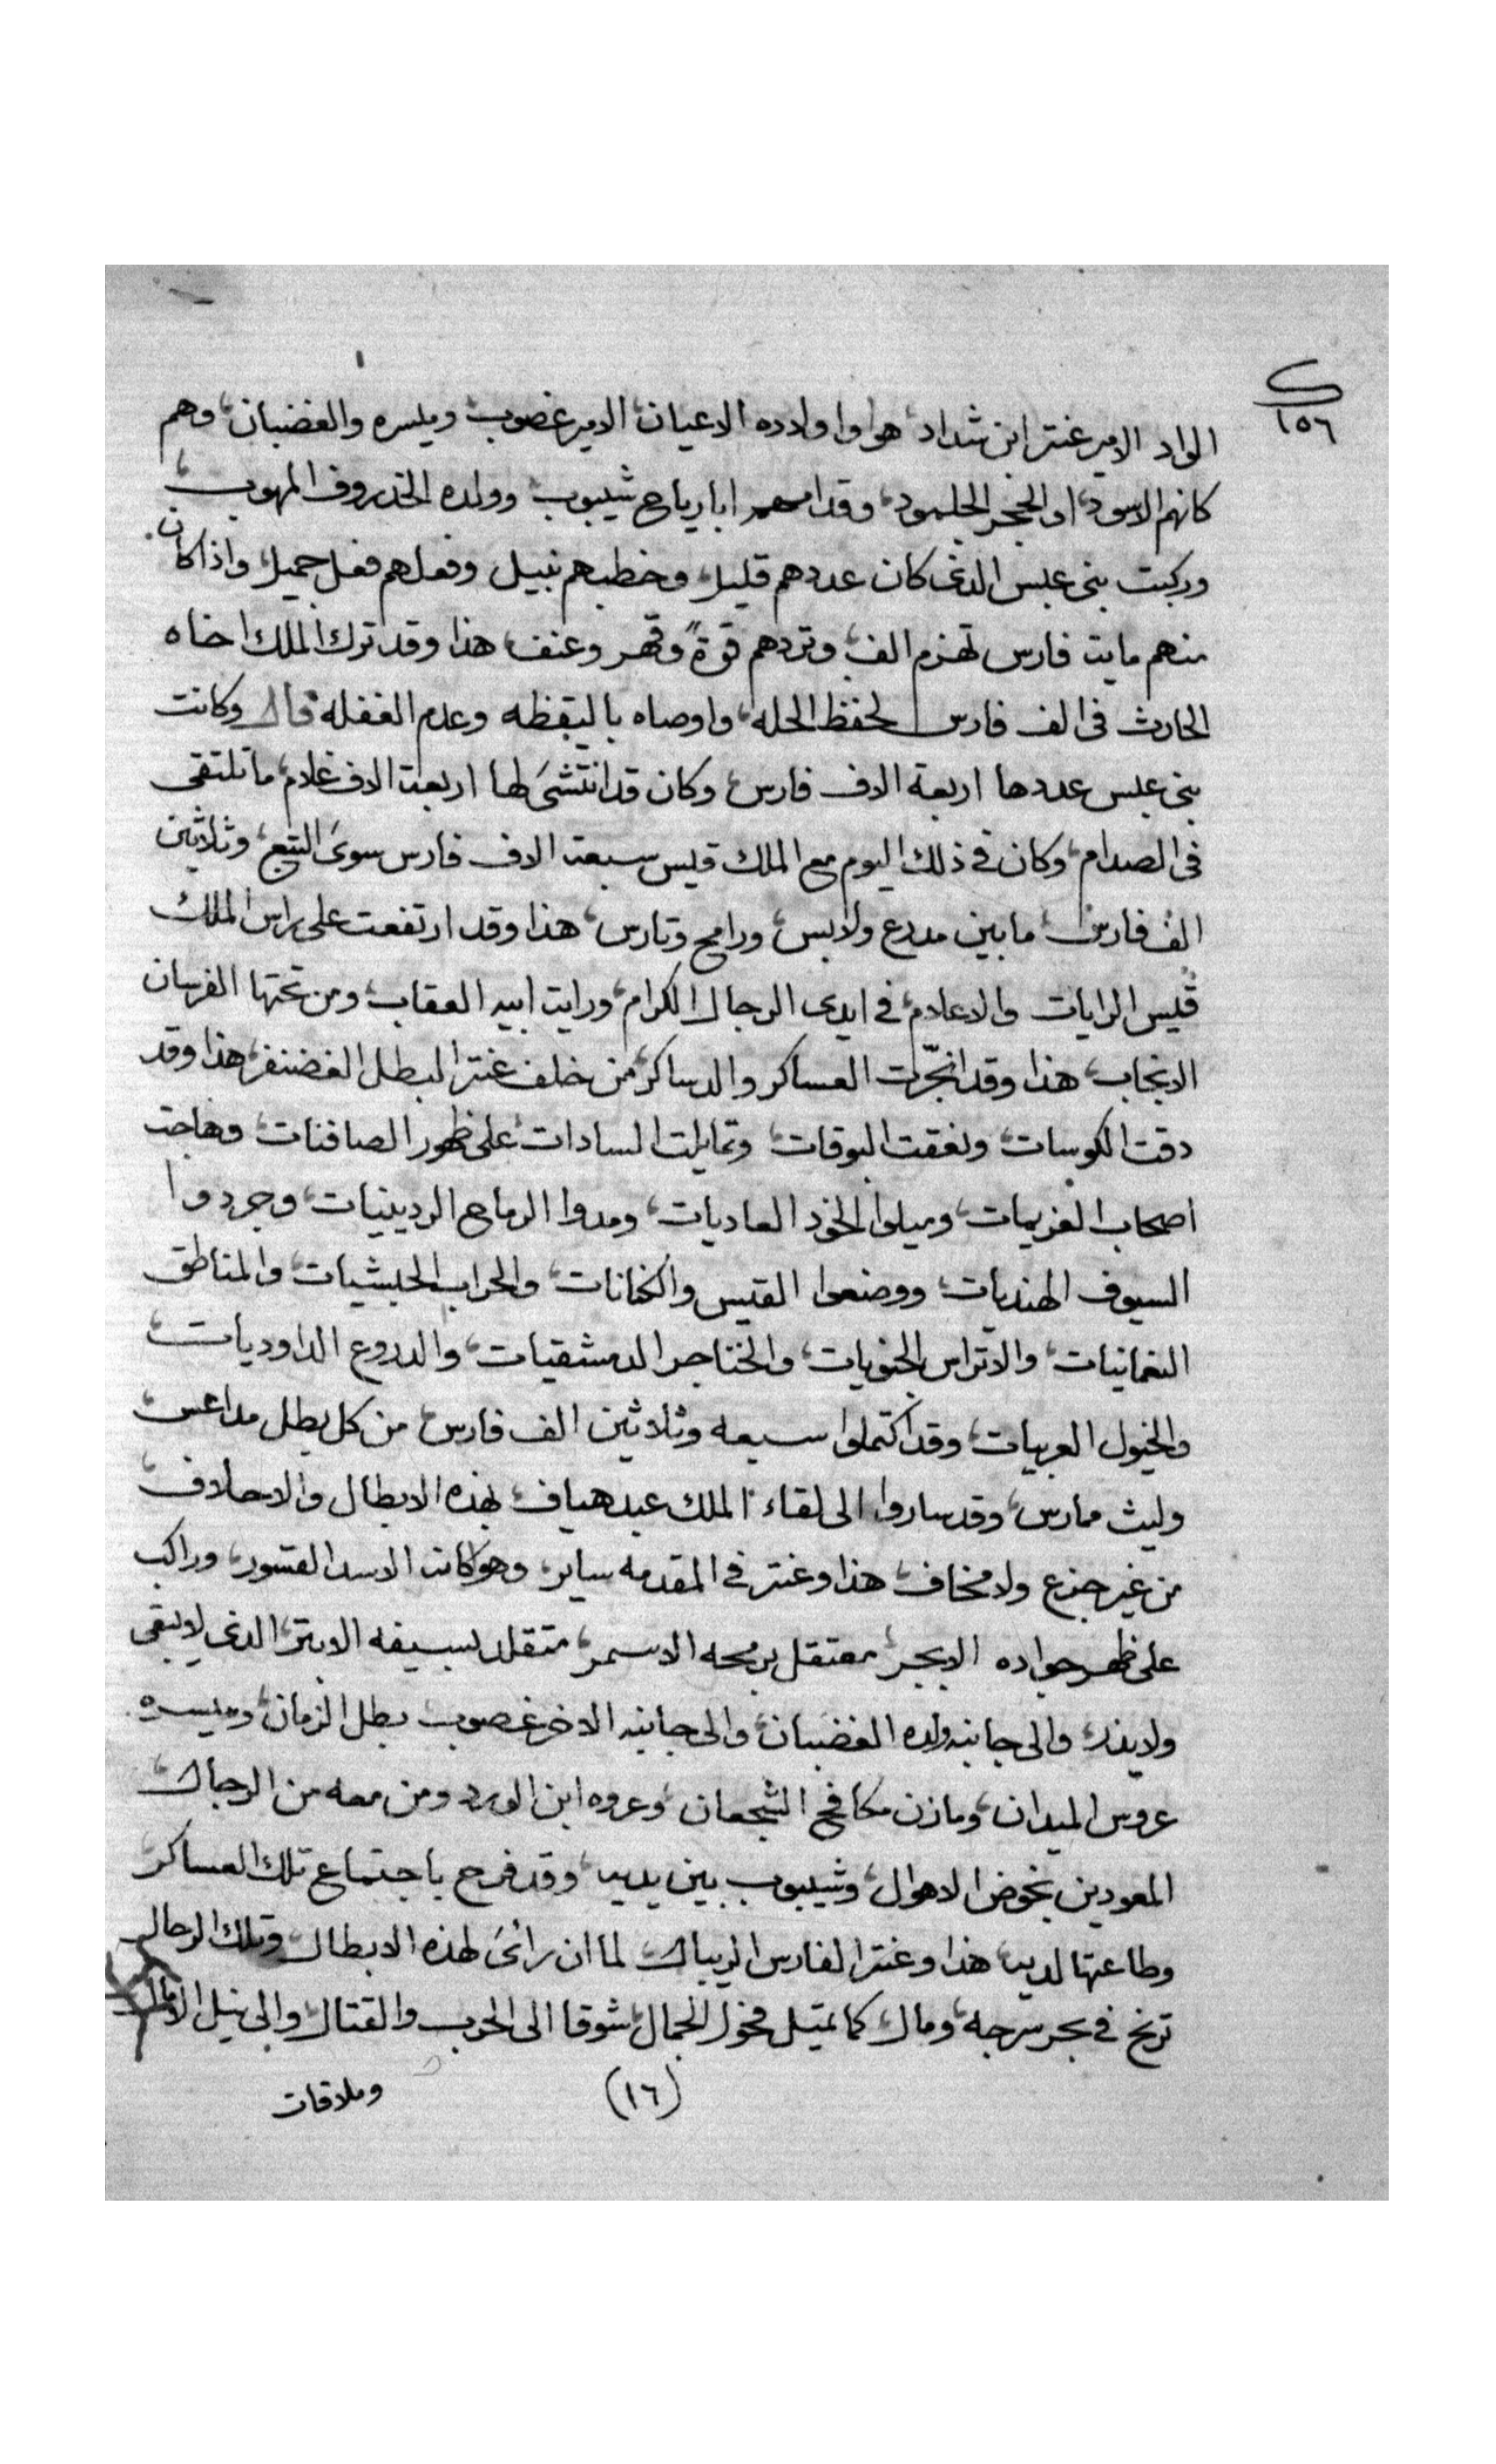 ١٥٦
الواد الامير عنتر ابن شداد، هو واولاده الاعيان، الامير غصوب وميسره والغضبان، وهم
كانهم الاسود، او الحجر الجلمود، وقدامهم ابا رياح شيبوب وولده الخدروف المهوب،
وركبت بنى عبس الدى كان عددهم قليل، وخطبهم نبيل وفعلهم فعل جميل، واذا كان
منهم مايت فارس تهزم الف، وتردهم قوةً وقهر وعنف، هذا وقد ترك الملك اخاه
الحارث فى الف فارس لحفظ الحله، واوصاه باليقظه وعدم الغفله قال وكانت
بنى عبس عددها اربعة الاف فارس، وكان قد انتشىَ لها اربعة الاف غلام، ما تلتقى
فى الصدام، وكان فى ذلك اليوم مع الملك قيس سبعة الاف فارس سوىَ التبع، وثلاثين
الف فارس، ما بين مدرع ولابس، ورامح وتارس، هذا وقد ارتفعت على راس الملك
قيس الرايات والاعلام، فى ايدى الرجال الكرام، ورايت ابيه العقاب، ومن تحتها الفرسان
الانجاب، هذا وقد انجّرت العساكر والدساكر، من خلف عنتر البطل الغضنفر، هذا وقد
دقت الكوسات، ونعقت البوقات، وتمايلت السادات، على ظهور الصافنات، وهاجت
اصحاب العزيمات، وميلوا الخود العاديات، ومدوا الرماح الردينيات، وجردوا
السيوف الهنديات، ووضعوا القيس والكنانات، والحراب الحبشيات، والمناطق
النعمانيات، والاتراس الجنويات، والخناجر الدمشقيات، والدروع الداوديات،
والخيول العربيات، وقد اكتملوا سبعه وثلاثين الف فارس، من كل بطل مداعس،
وليث ممارس، وقد ساروا الى لقاء الملك عبد هياف، بهذه الابطال والاحلاف،
من غير جزع ولا مخاف، هذا وعنتر فى المقدمه ساير، وهو كانه الاسد القسور، وراكب
على ظهر جواده الابجر، معتقل برمحه الاسمر، متقلد بسيفه الابتر، الدى لا يبقى
ولا يذر، والى جانبه ولده الغضبان، والى جانبه الاخر غصوب بطل الزمان، وميسره
عروس الميدان، ومازن مكافح الشجعان، وعروه ابن الورد ومن معه من الرجال،
المعودين بخوض الاهوال، وشيبوب بين يديه، وقد فرح باجتماع تلك العساكر
وطاعتها لديه، هذا وعنتر الفارس الريبال، لما ان رائىَ لهذه الابطال، وتلك الرجال
ترنح فى بحر سرجه، ومال، كما تميل فحول الجمال، شوقا الى الحرب والقتال، والى نيل الامال
(١٦)
وملاقات